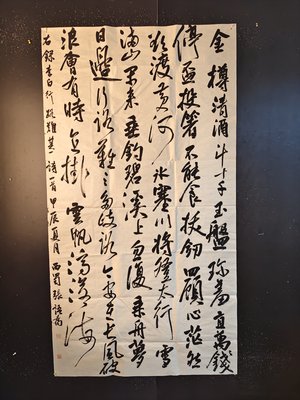 金樽清酒斗十千玉盤珍羞直萬錢
停盃投箸不能食拔劍四顧心茫然
欲渡黄河冰塞川將登太行雪
滿山閑来垂釣碧溪上忽復乘舟夢
日邊行路難〻多歧路今安在長風破
浪會有時直掛雲帆濟滄海
右錄李白行路難其一詩一首甲辰夏月西蜀張